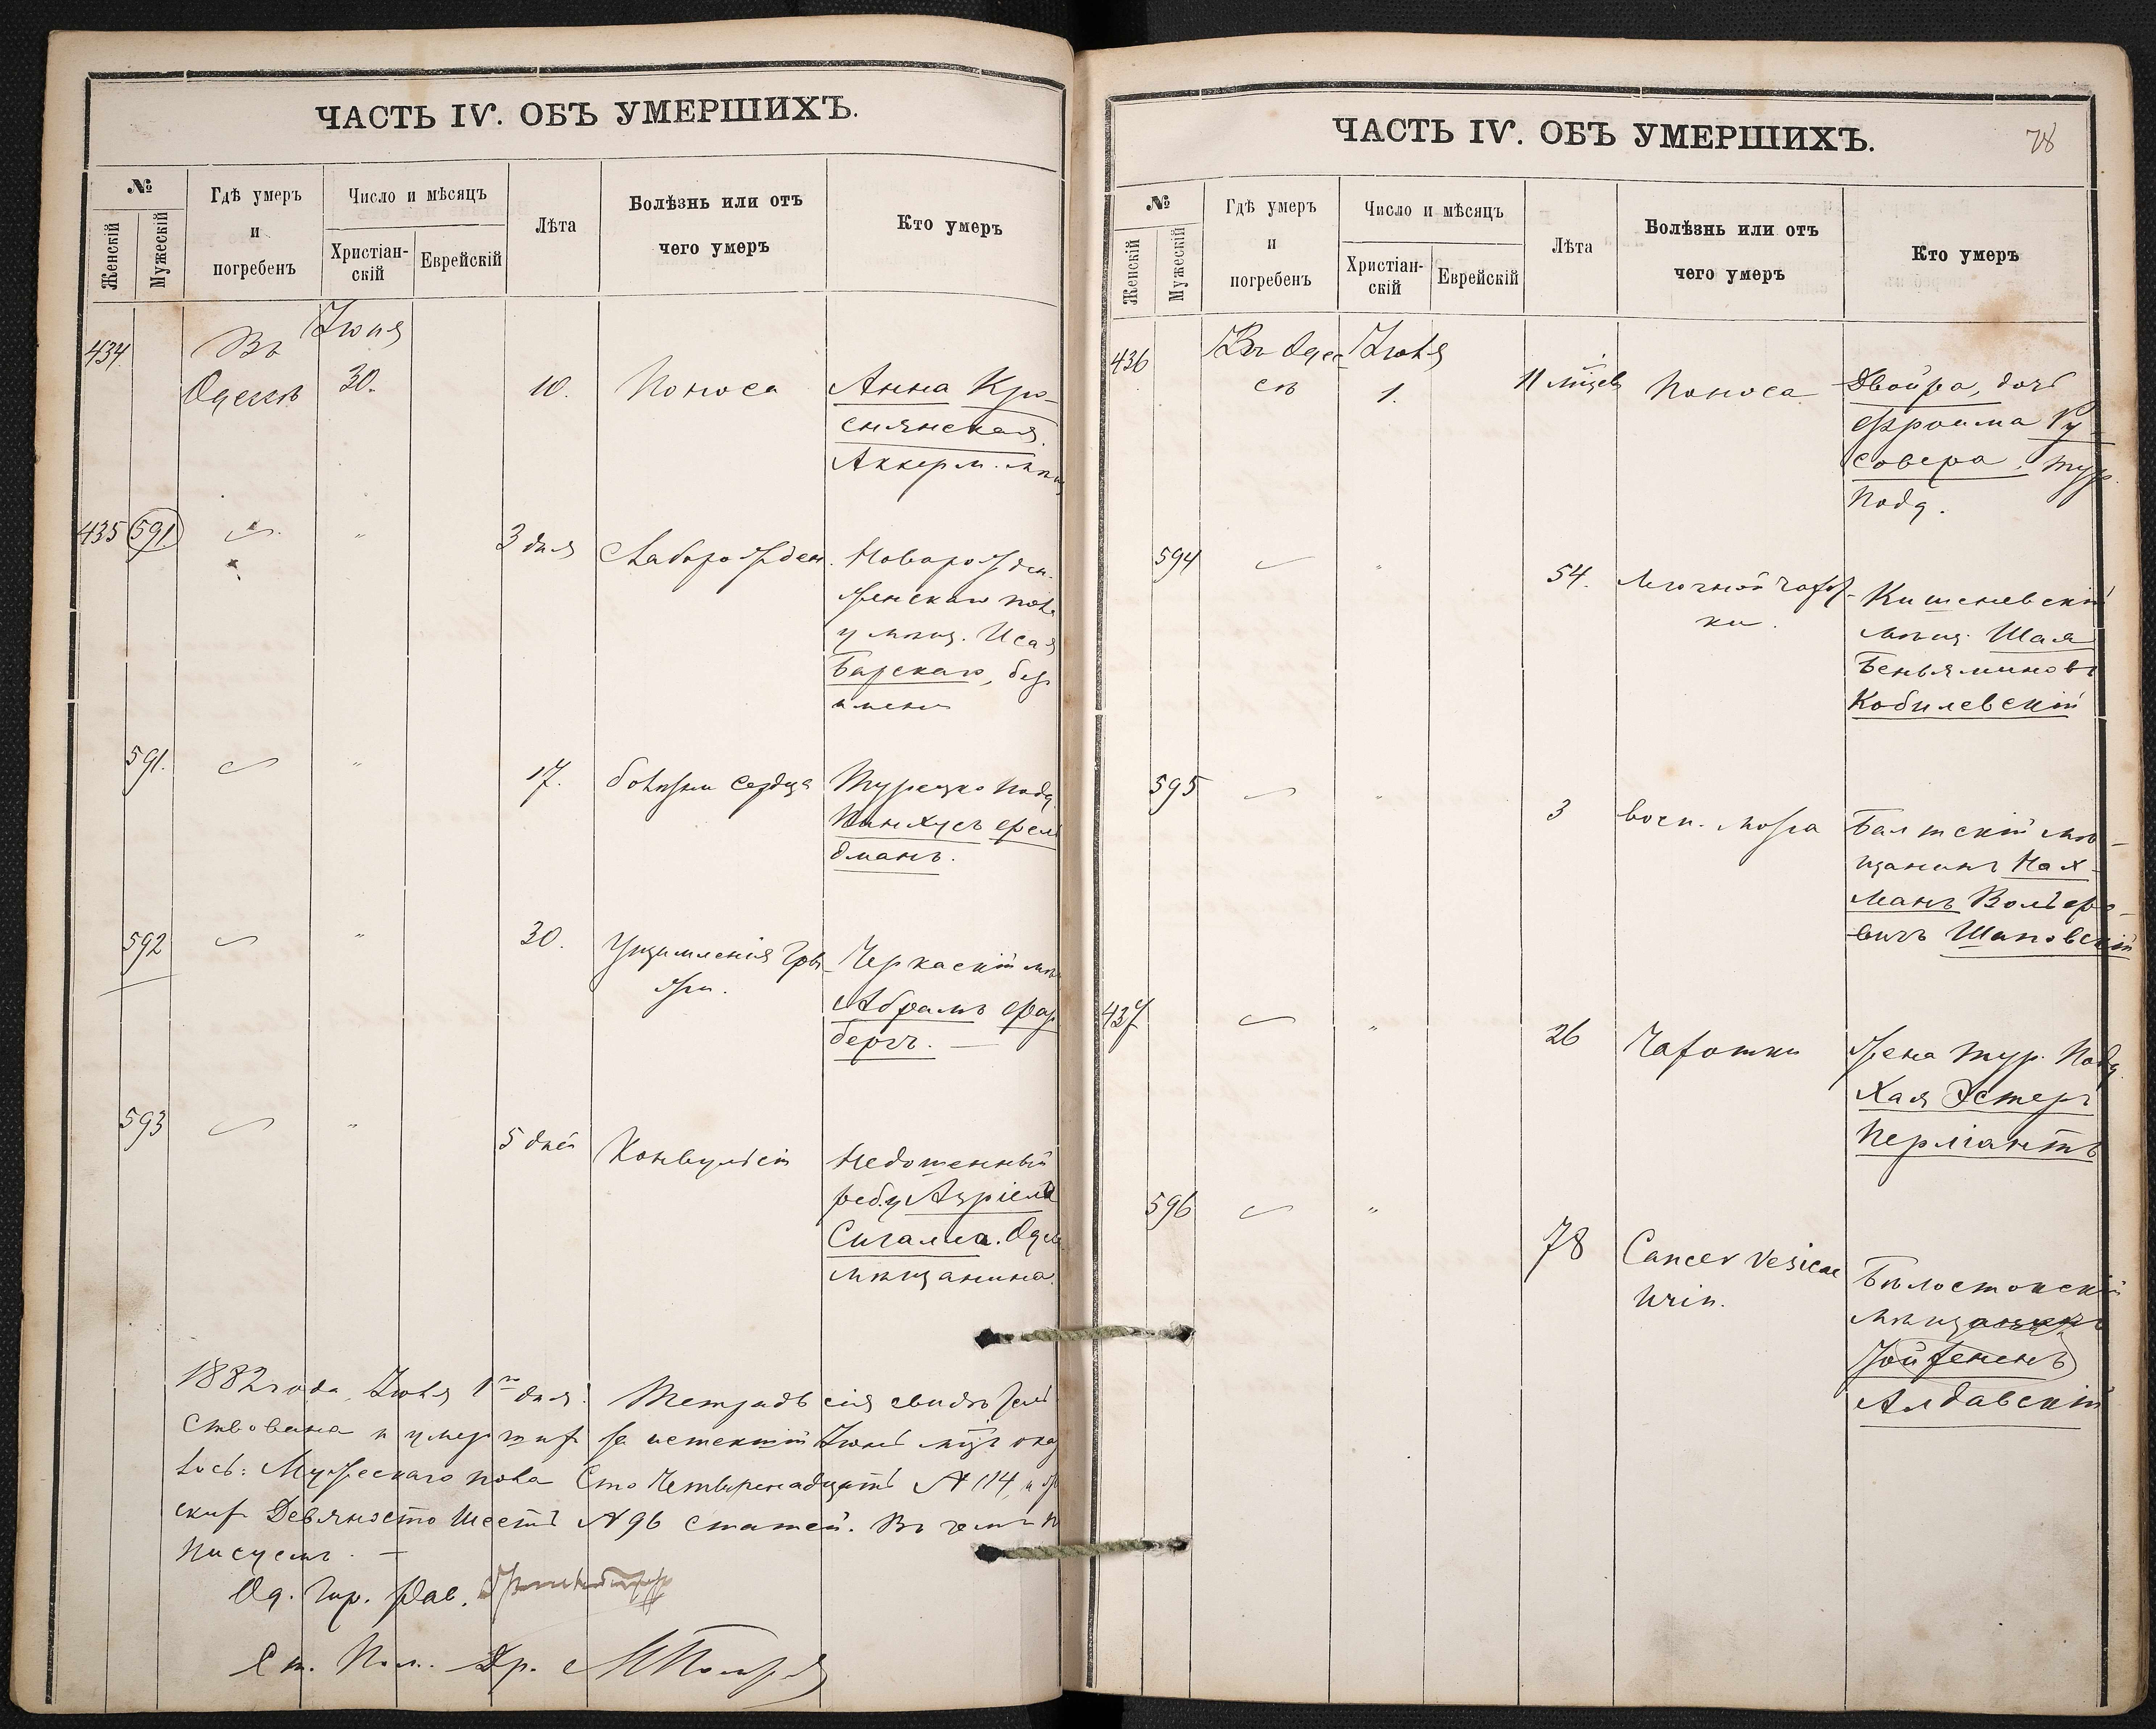 ЧАСТЬ IV. ОБЪ УМЕРШИХЪ.
№
Женскій
Мужескій
Гдѣ умеръ
и
погребенъ
Число и мѣсяцъ
Христіан-
скій
Еврейскій
Лѣта
Болѣзнь или отъ
чего умеръ
Кто умеръ
434
Въ
Одессѣ
Іюня
30.
10.
Поноса
Анна
Аккерм. мѣщ
435
591
"
3 дня
Новорожден.
женскаго пола
у мѣщ. Исая
Барскаго, безъ
имени
591.
"
17.
болѣзни сердца
Турецко подд.
Пинхусъ Фель
дманъ.
592
"
30.
Ущемленія гры-
жи.
Черкаскій мѣщ
Абрамъ Фар
бергъ. —
593
"
5 дней
Конвульсій
реб. у Азріела
Сигалла. Одес
мѣщанина.
1882 года, Іюля 1го дня. Тетрадь сія свидѣтель
ствована и умершихъ за истекшій Іюнь мѣц. оказ
лось: Мужескаго пола Сто Четырнадцать № 114, и
скихъ Девяносто Шесть № 96 статей. Въ чемъ
писуемъ. —
Од. Гор. Рав.
Др.
ЧАСТЬ IV. ОБЪ УМЕРШИХЪ.
78
№
Женскій
Мужескій
Гдѣ умеръ
и
погребенъ
Число и мѣсяцъ
Христіан-
скій
Еврейскій
Лѣта
Болѣзнь или отъ
чего умеръ
Кто умеръ
436
Въ Одес
сѣ
Іюля
1.
11 мѣсяцевъ
Поноса
Двойра, дочь
Фроима Ру-
совера, тур.
подд.
594
"
54.
Кишеневскій
мѣщ. Шая
Беньяминовъ
Кобилевскій
595
"
3
восп. мозга
Балтскій мѣ-
щанинъ Нах-
манъ Вольфо-
вичъ Шановскій
437
"
26
Чахотки
Жена тур. подд.
Хая Эстеръ
Перліантъ
596
"
78
Cancer vesicae
urin.
Бѣлостокскій
мѣщанинъ
Алдавскій